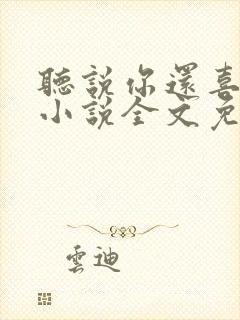 聽說你還喜
小說全文免
雲迪